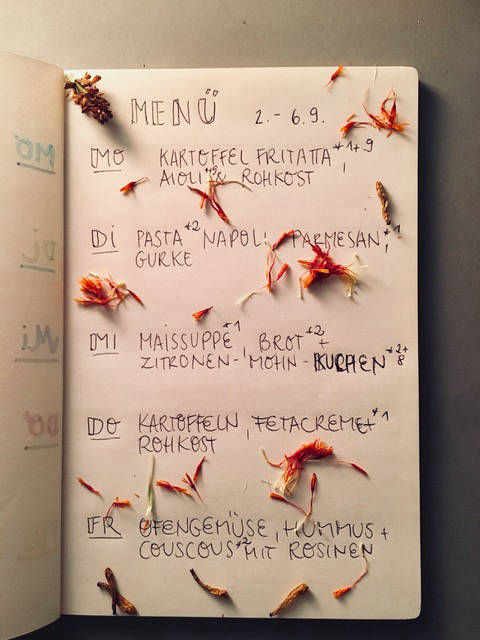 MENÜ 2. - 6.9.
MO KARTOFFEL FRITATTA*1+9,
AIOLI*9 & ROHKOST
DI PASTA*2 NAPOLI, PARMESAN*1,
GURKE
MI MAISSUPPE*1, BROT*2 +
ZITRONEN-MOHN-KUCHEN*2+8
DO KARTOFFELN, FETACREME*1
ROHKOST
FR OFENGEMÜSE, HUMMUS +
COUSCOUS*2 MIT ROSINEN
MO
Di
Mi
DO